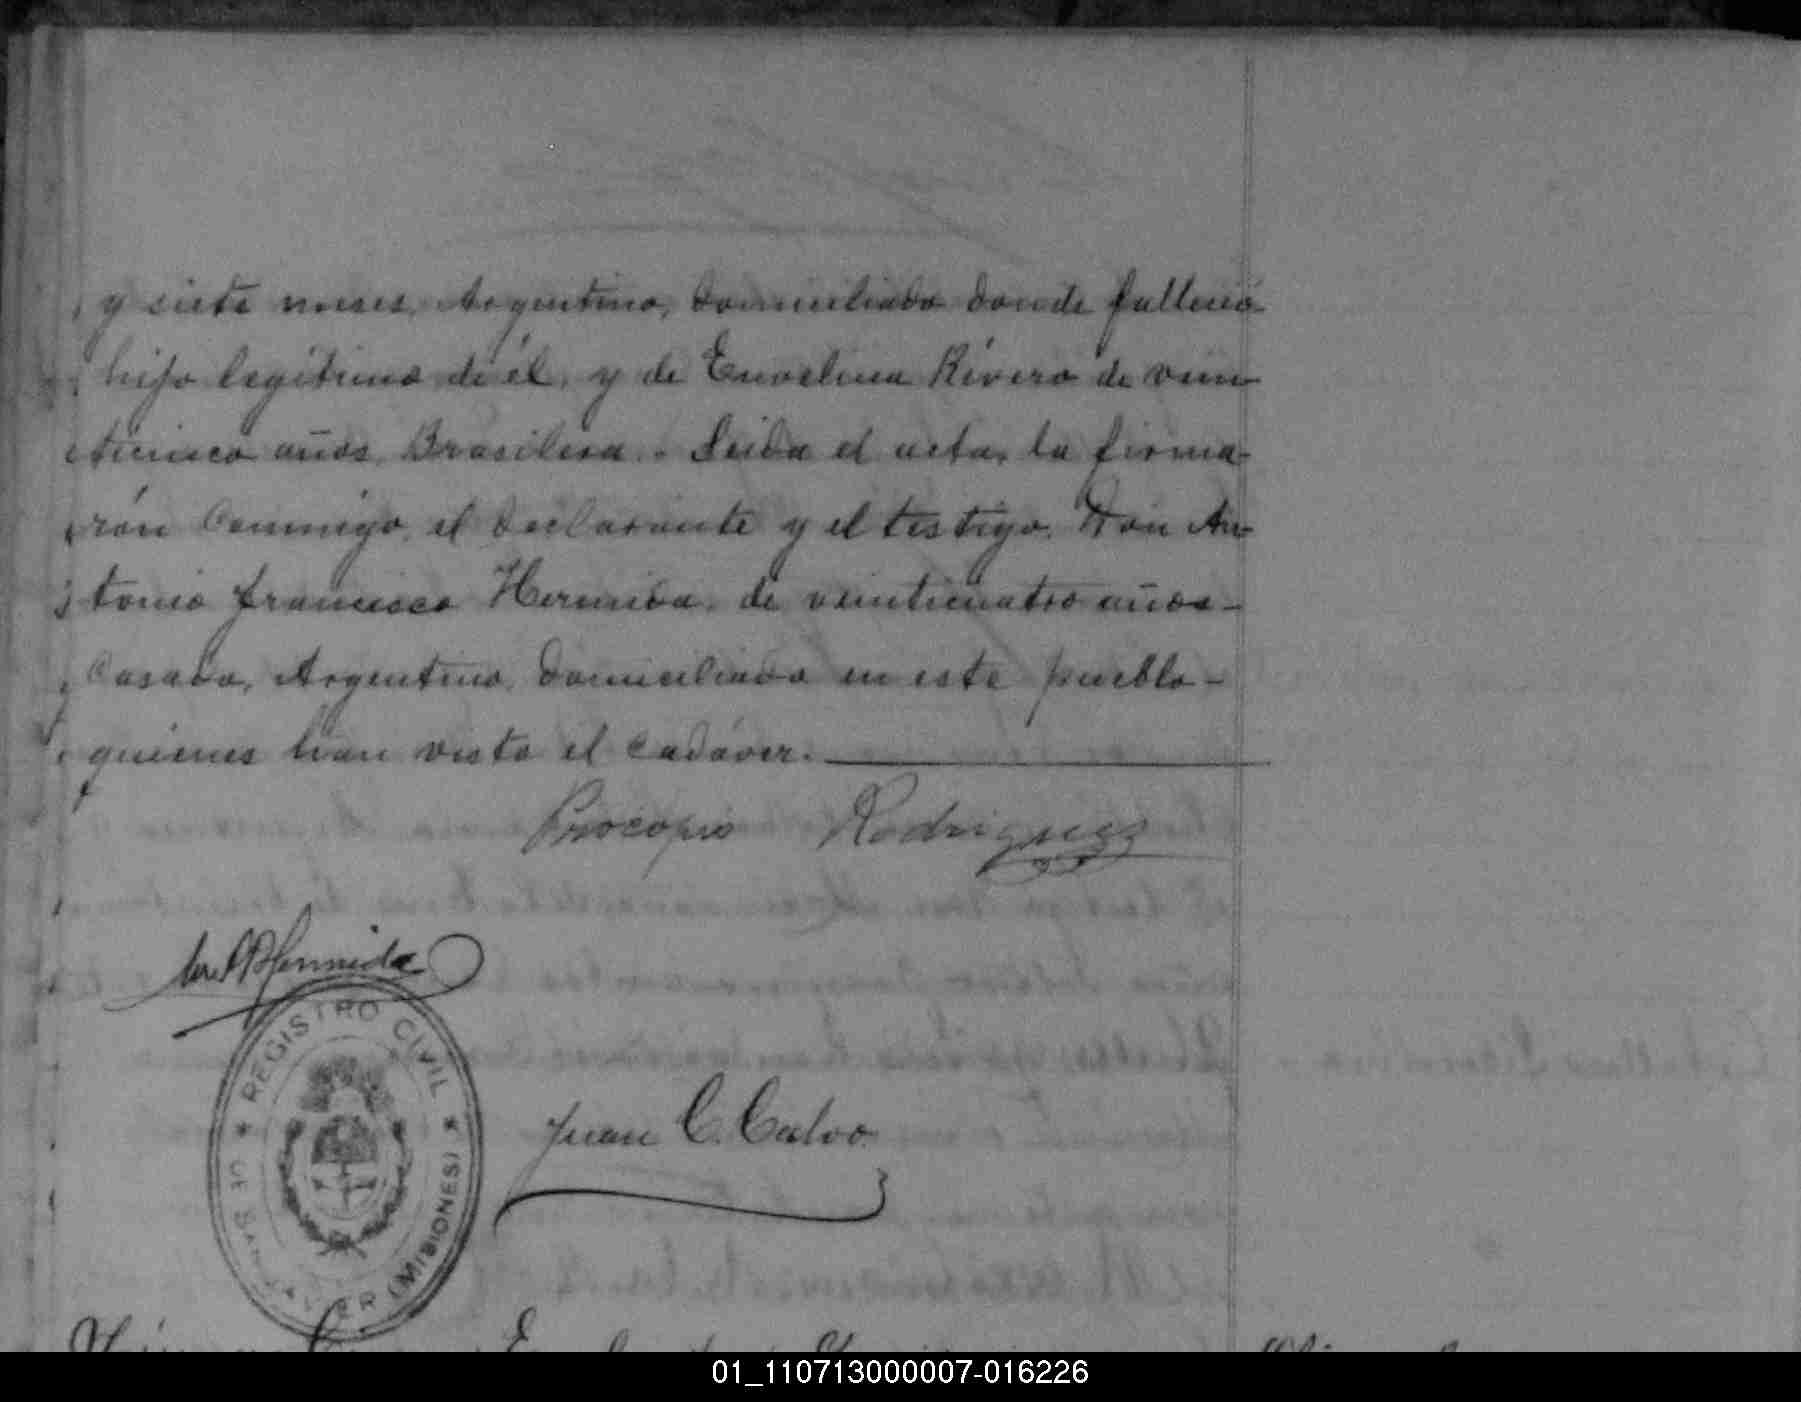 y siete meses, Argentino, domiciliado donde falleció
hijo legítimo de él, y de Envelina Rivero de vein-
ticinco años, Brasilera. Leida el acta, la firma-
rón conmigo, el declarante y el testigo. Don An-
tonio Francisco Hermida, de veinticuatro años-
Casado, Argentino, domiciliado en este pueblo-
quienes han visto el cadáver.
Procopio Rodriguez
Hermida
REGISTRO CIVIL
DE SAN JAVIER (MISIONES)
Juan C. Calvo
01_110713000007-016226